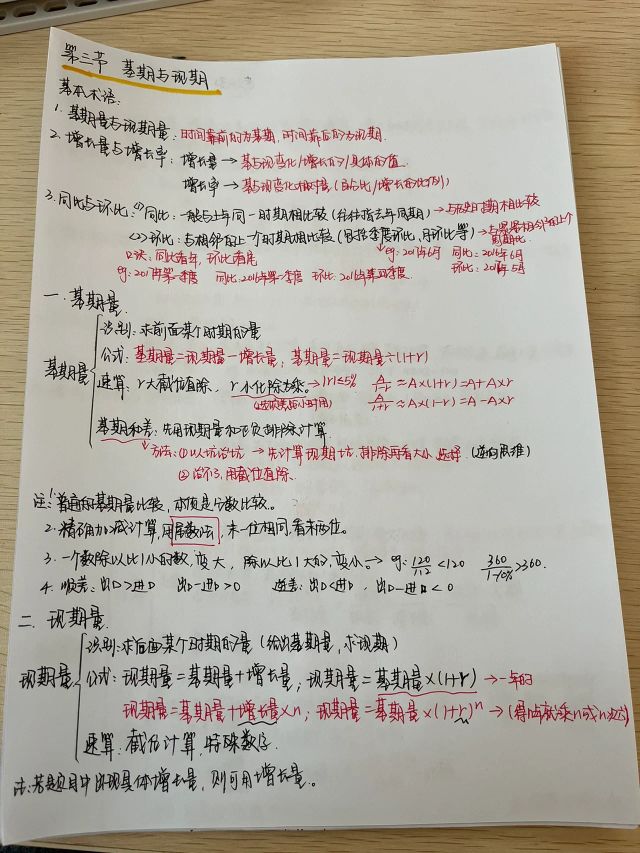 第三节 基期与现期
基本术语:
1. 基期量与现期量: 时间靠前的为基期, 时间靠后的为现期.
2. 增长量与增长率: 增长量→基与现变化/增长的/具体的值
增长率→基与现变化相对量(百分比/增长的比例)
3. 同比与环比: (1)同比: 一般与上年同一时期相比较(往往指去年同期)→与历史时期相比较
(2)环比: 与相邻的上一个时期相比较(包括季度环比,月环比等)→与紧紧相邻的上个周期比
口诀: 同比看年, 环比看尾 eg: 2017年6月 同比: 2016年6月
eg: 2017年第一季度 同比: 2016年第一季度 环比: 2016年第四季度 环比: 2017年5月
一. 基期量
基期量
识别: 求前面某个时期的量
公式: 基期量=现期量-增长量, 基期量=现期量÷(1+r)
速算: r大截位直除, r小化除为乘。→|r|≤5% A/1-r≈A×(1+r)=A+A×r
(选项差距小时用) A/1+r≈A×(1-r)=A-A×r
基期和差: 先用现期量和正负排除计算
方法: ①以坑治坑→先计算现期坑, 排除再看大小选择(逆向思维)
②治不了, 用截位直除
注: 1. 普通的基期量比较, 本质是分数比较。
2. 精确加减计算, 用尾数法, 末一位相同, 看末两位。
3. 一个数除以比1小的数, 变大, 除以比1大的, 变小。→eg: 120/1.12<120 360/1-10%>360.
4. 顺差: 出口>进口 出口-进口>0 逆差: 出口<进口, 出口-进口<0
二. 现期量
现期量
识别: 求后面某个时期的量(给出基期量, 求现期)
公式: 现期量=基期量+增长量, 现期量=基期量×(1+r)→一年的
现期量=基期量+增长量×n, 现期量=基期量×(1+r)ⁿ→(得n年就乘n或n次方)
速算: 截位计算, 特殊数字.
注: 若是题目中出现具体增长量, 则可用增长量。